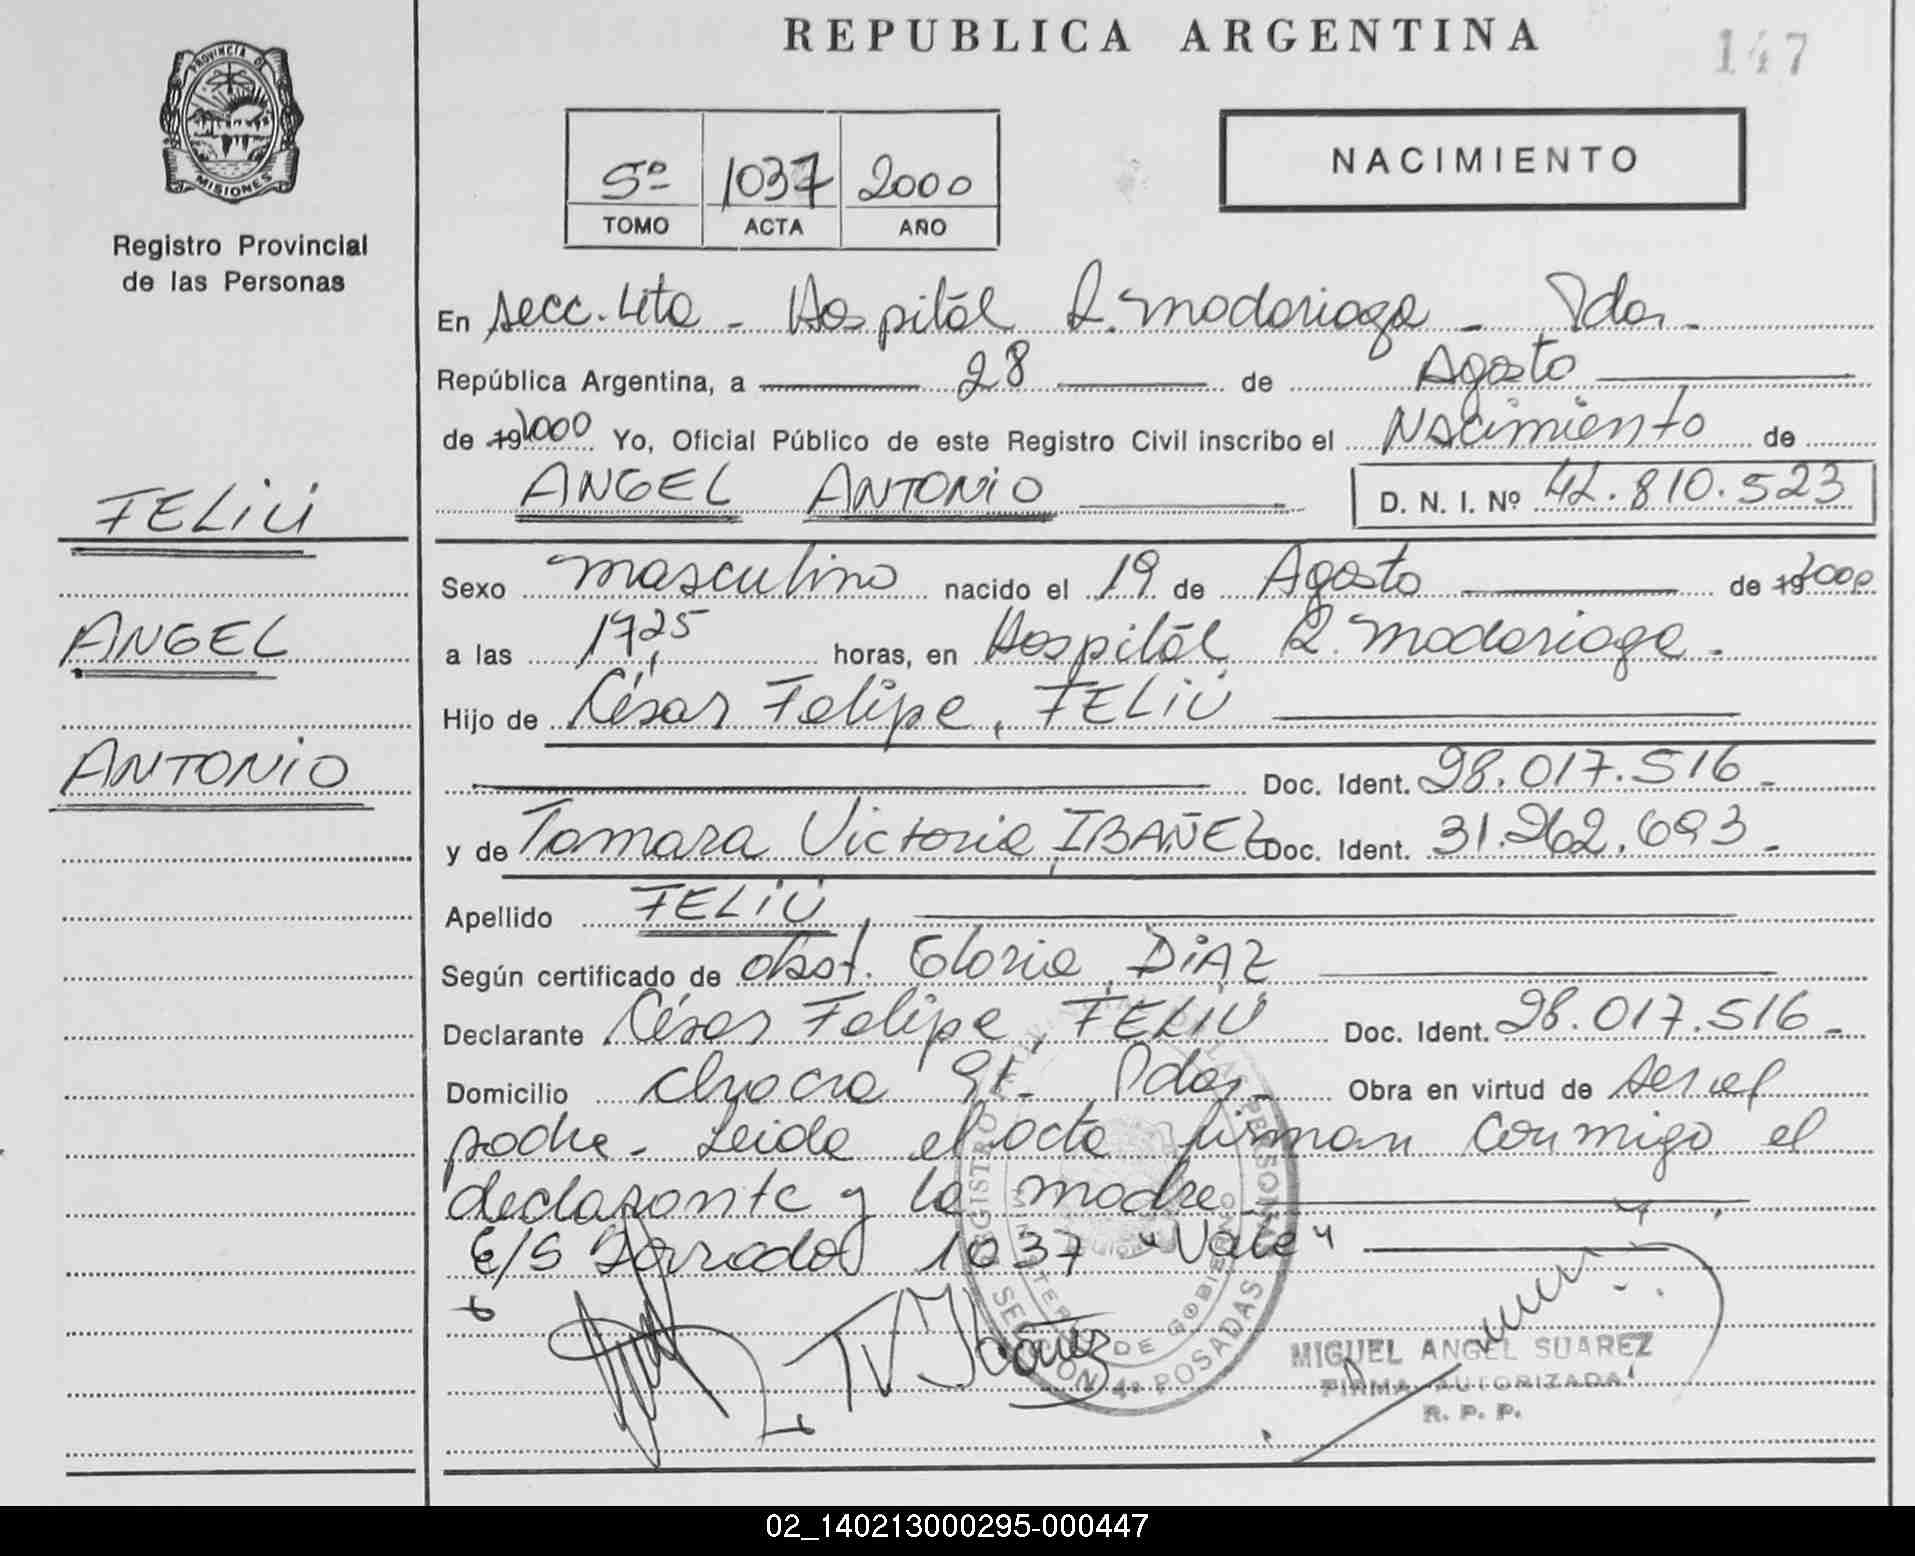 REPUBLICA ARGENTINA
147
PROVINCIA DE
MISIONES
Registro Provincial
de las Personas
5º 1037 2000
TOMO ACTA AÑO
NACIMIENTO
En secc. 4ta - Hospital R. Madariaga - Pdas.
República Argentina, a 28 de Agosto
de 19 2000 Yo, Oficial Público de este Registro Civil inscribo el Nacimiento de
ANGEL ANTONIO D. N. I. Nº 42.810.523
FELIÚ
ANGEL
ANTONIO
Sexo masculino nacido el 19 de Agosto de 19 2000
a las 17,25 horas, en Hospital R. Madariaga.
Hijo de César Felipe, FELIÚ
Doc. Ident. 28.017.516.
y de Tamara Victoria, IBAÑEZ Doc. Ident. 31.262.693.
Apellido FELIÚ
Según certificado de obst. Gloria, DIAZ
Declarante César Felipe, FELIÚ Doc. Ident. 28.017.516.
Domicilio chacra Pdas. Obra en virtud de ser el
padre. Leida el acta firman conmigo el
declarante y la madre
E/S Borrado 1037 "Vale"
TV Ibañez
REGISTRO PROV. DE LAS PERSONAS
MINISTERIO DE GOBIERNO
SECCION 4ª POSADAS
MIGUEL ANGEL SUAREZ
FIRMA AUTORIZADA
R. P. P.
02_140213000295-000447